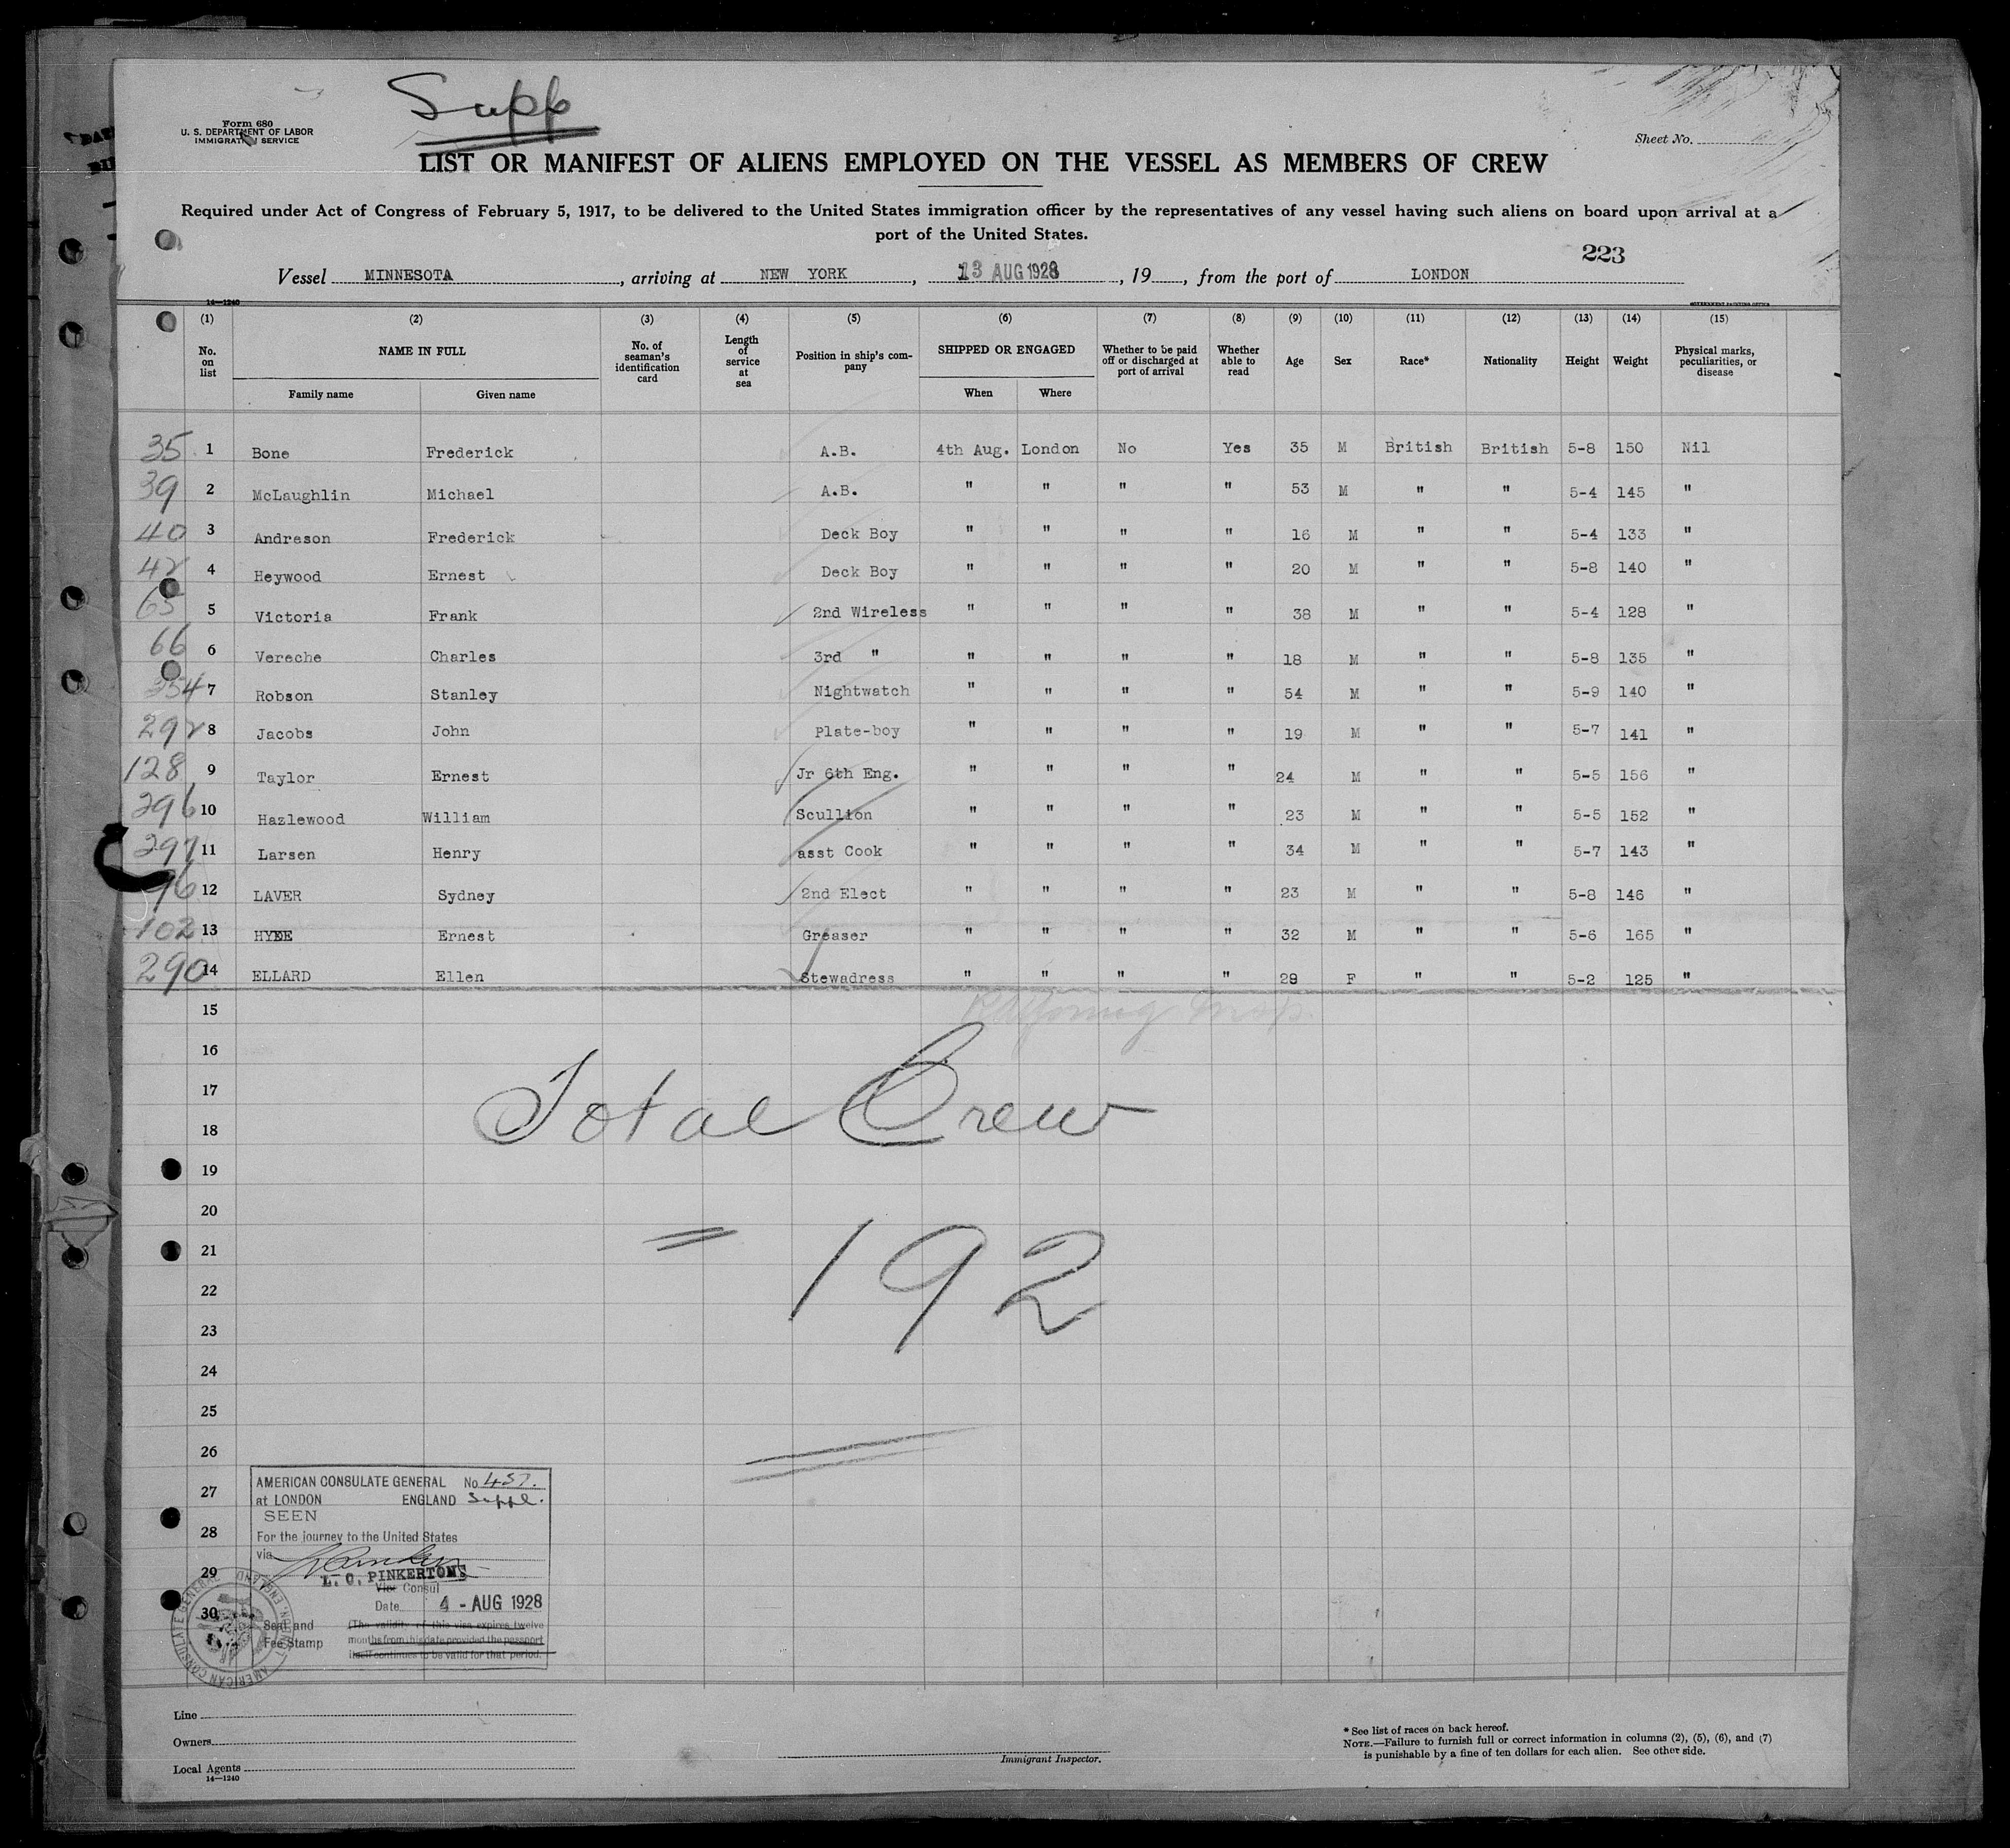 Supp
Form 680
U. S. DEPARTMENT OF LABOR
IMMIGRATION SERVICE
Sheet No.
LIST OR MANIFEST OF ALIENS EMPLOYED ON THE VESSEL AS MEMBERS OF CREW
Required under Act of Congress of February 5, 1917, to be delivered to the United States immigration officer by the representatives of any vessel having such aliens on board upon arrival at a
port of the United States.
223
Vessel MINNESOTA, arriving at NEW YORK, 13 AUG 1928, 19, from the port of LONDON
14—1240 GOVERNMENT PRINTING OFFICE
(1) (2) (3) (4) (5) (6) (7) (8) (9) (10) (11) (12) (13) (14) (15)
No. on list NAME IN FULL No. of seaman's identification card Length of service at sea Position in ship's company SHIPPED OR ENGAGED Whether to be paid off or discharged at port of arrival Whether able to read Age Sex Race* Nationality Height Weight Physical marks, peculiarities, or disease
Family name Given name When Where
35 1 Bone Frederick A.B. 4th Aug. London No Yes 35 M British British 5-8 150 Nil
39 2 McLaughlin Michael A.B. " " " " 53 M " " 5-4 145 "
40 3 Andreson Frederick Deck Boy " " " " 16 M " " 5-4 133 "
42 4 Heywood Ernest Deck Boy " " " " 20 M " " 5-8 140 "
65 5 Victoria Frank 2nd Wireless " " " " 38 M " " 5-4 128 "
66 6 Vereche Charles 3rd " " " " " 18 M " " 5-8 135 "
7 Robson Stanley Nightwatch " " " " 54 M " " 5-9 140 "
292 8 Jacobs John Plate-boy " " " " 19 M " " 5-7 141 "
128 9 Taylor Ernest Jr 6th Eng. " " " " 24 M " " 5-5 156 "
296 10 Hazlewood William Scullion " " " " 23 M " " 5-5 152 "
297 11 Larsen Henry asst Cook " " " " 34 M " " 5-7 143 "
96 12 LAVER Sydney 2nd Elect " " " " 23 M " " 5-8 146 "
102 13 HYDE Ernest Greaser " " " " 32 M " " 5-6 165 "
290 14 ELLARD Ellen Stewadress " " " " 29 F " " 5-2 125 "
15
16
17
Total Crew
18
19
20
21
= 192
22
23
24
25
26
27
28
29
30
AMERICAN CONSULATE GENERAL No 457.
at LONDON ENGLAND Suppl.
SEEN
For the journey to the United States
via
L. C. PINKERTON
Vice Consul
Date 4 - AUG 1928
Seal and
Fee Stamp
(The validity of this visa expires twelve
months from this date provided the passport
itself continues to be valid for that period.
AMERICAN CONSULATE GENERAL
Line
Owners
Local Agents
14—1240
Immigrant Inspector.
* See list of races on back hereof.
NOTE.—Failure to furnish full or correct information in columns (2), (5), (6), and (7)
is punishable by a fine of ten dollars for each alien. See other side.